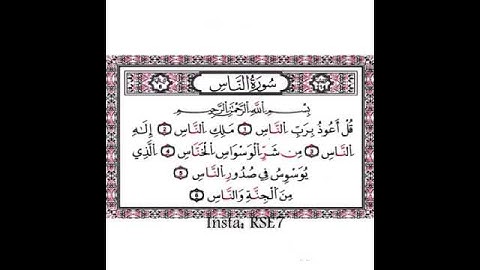 سُورَةُ النَّاسِ
بِسْمِ اللَّهِ الرَّحْمَٰنِ الرَّحِيمِ
قُلْ أَعُوذُ بِرَبِّ النَّاسِ ١ مَلِكِ النَّاسِ ٢ إِلَٰهِ
النَّاسِ ٣ مِن شَرِّ الْوَسْوَاسِ الْخَنَّاسِ ٤ الَّذِي
يُوَسْوِسُ فِي صُدُورِ النَّاسِ ٥
مِنَ الْجِنَّةِ وَالنَّاسِ ٦
Insta: RSE7